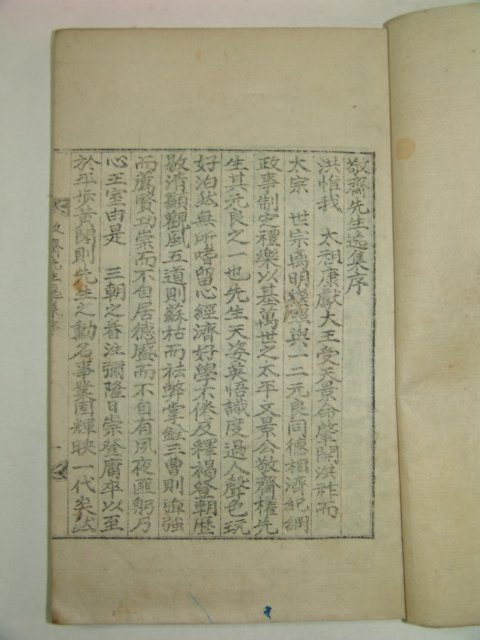 敬齋先生逸集序
洪惟我 太祖康獻大王受天景命肇開洪祚而
太宗 世宗繼明 興一二元良同德相濟紀綱
政事制定禮樂以基萬世之太平文景公敬齋權先
生其元良之一也先生天姿英悟識度過人聲色玩
好泊然無所嗜留心經濟好學不倦及釋褐登朝歷
敭清顯觀風五道則蘇枯而祛弊掌銓三曹則 強
而薦賢功崇而不自居德盛而不自有夙夜匪躬乃
心王室由是 三朝之眷注彌隆日崇登庸卒以至
於平步黃閣則先生之勳名事業固輝映一代矣然
敬齋先生逸集序 一